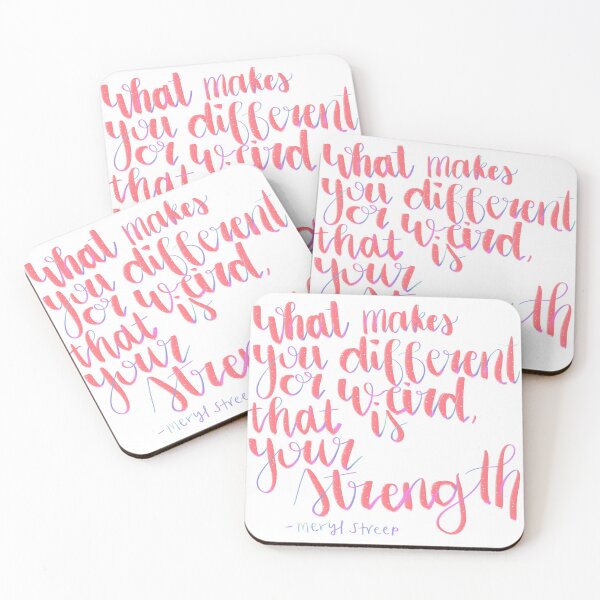 What makes
you different
or weird
that
What makes
you different
or weird,
that is
your
What makes
you different
or weird,
that is
your
What makes
you different
or weird,
that is
your
strength
-meryl streep